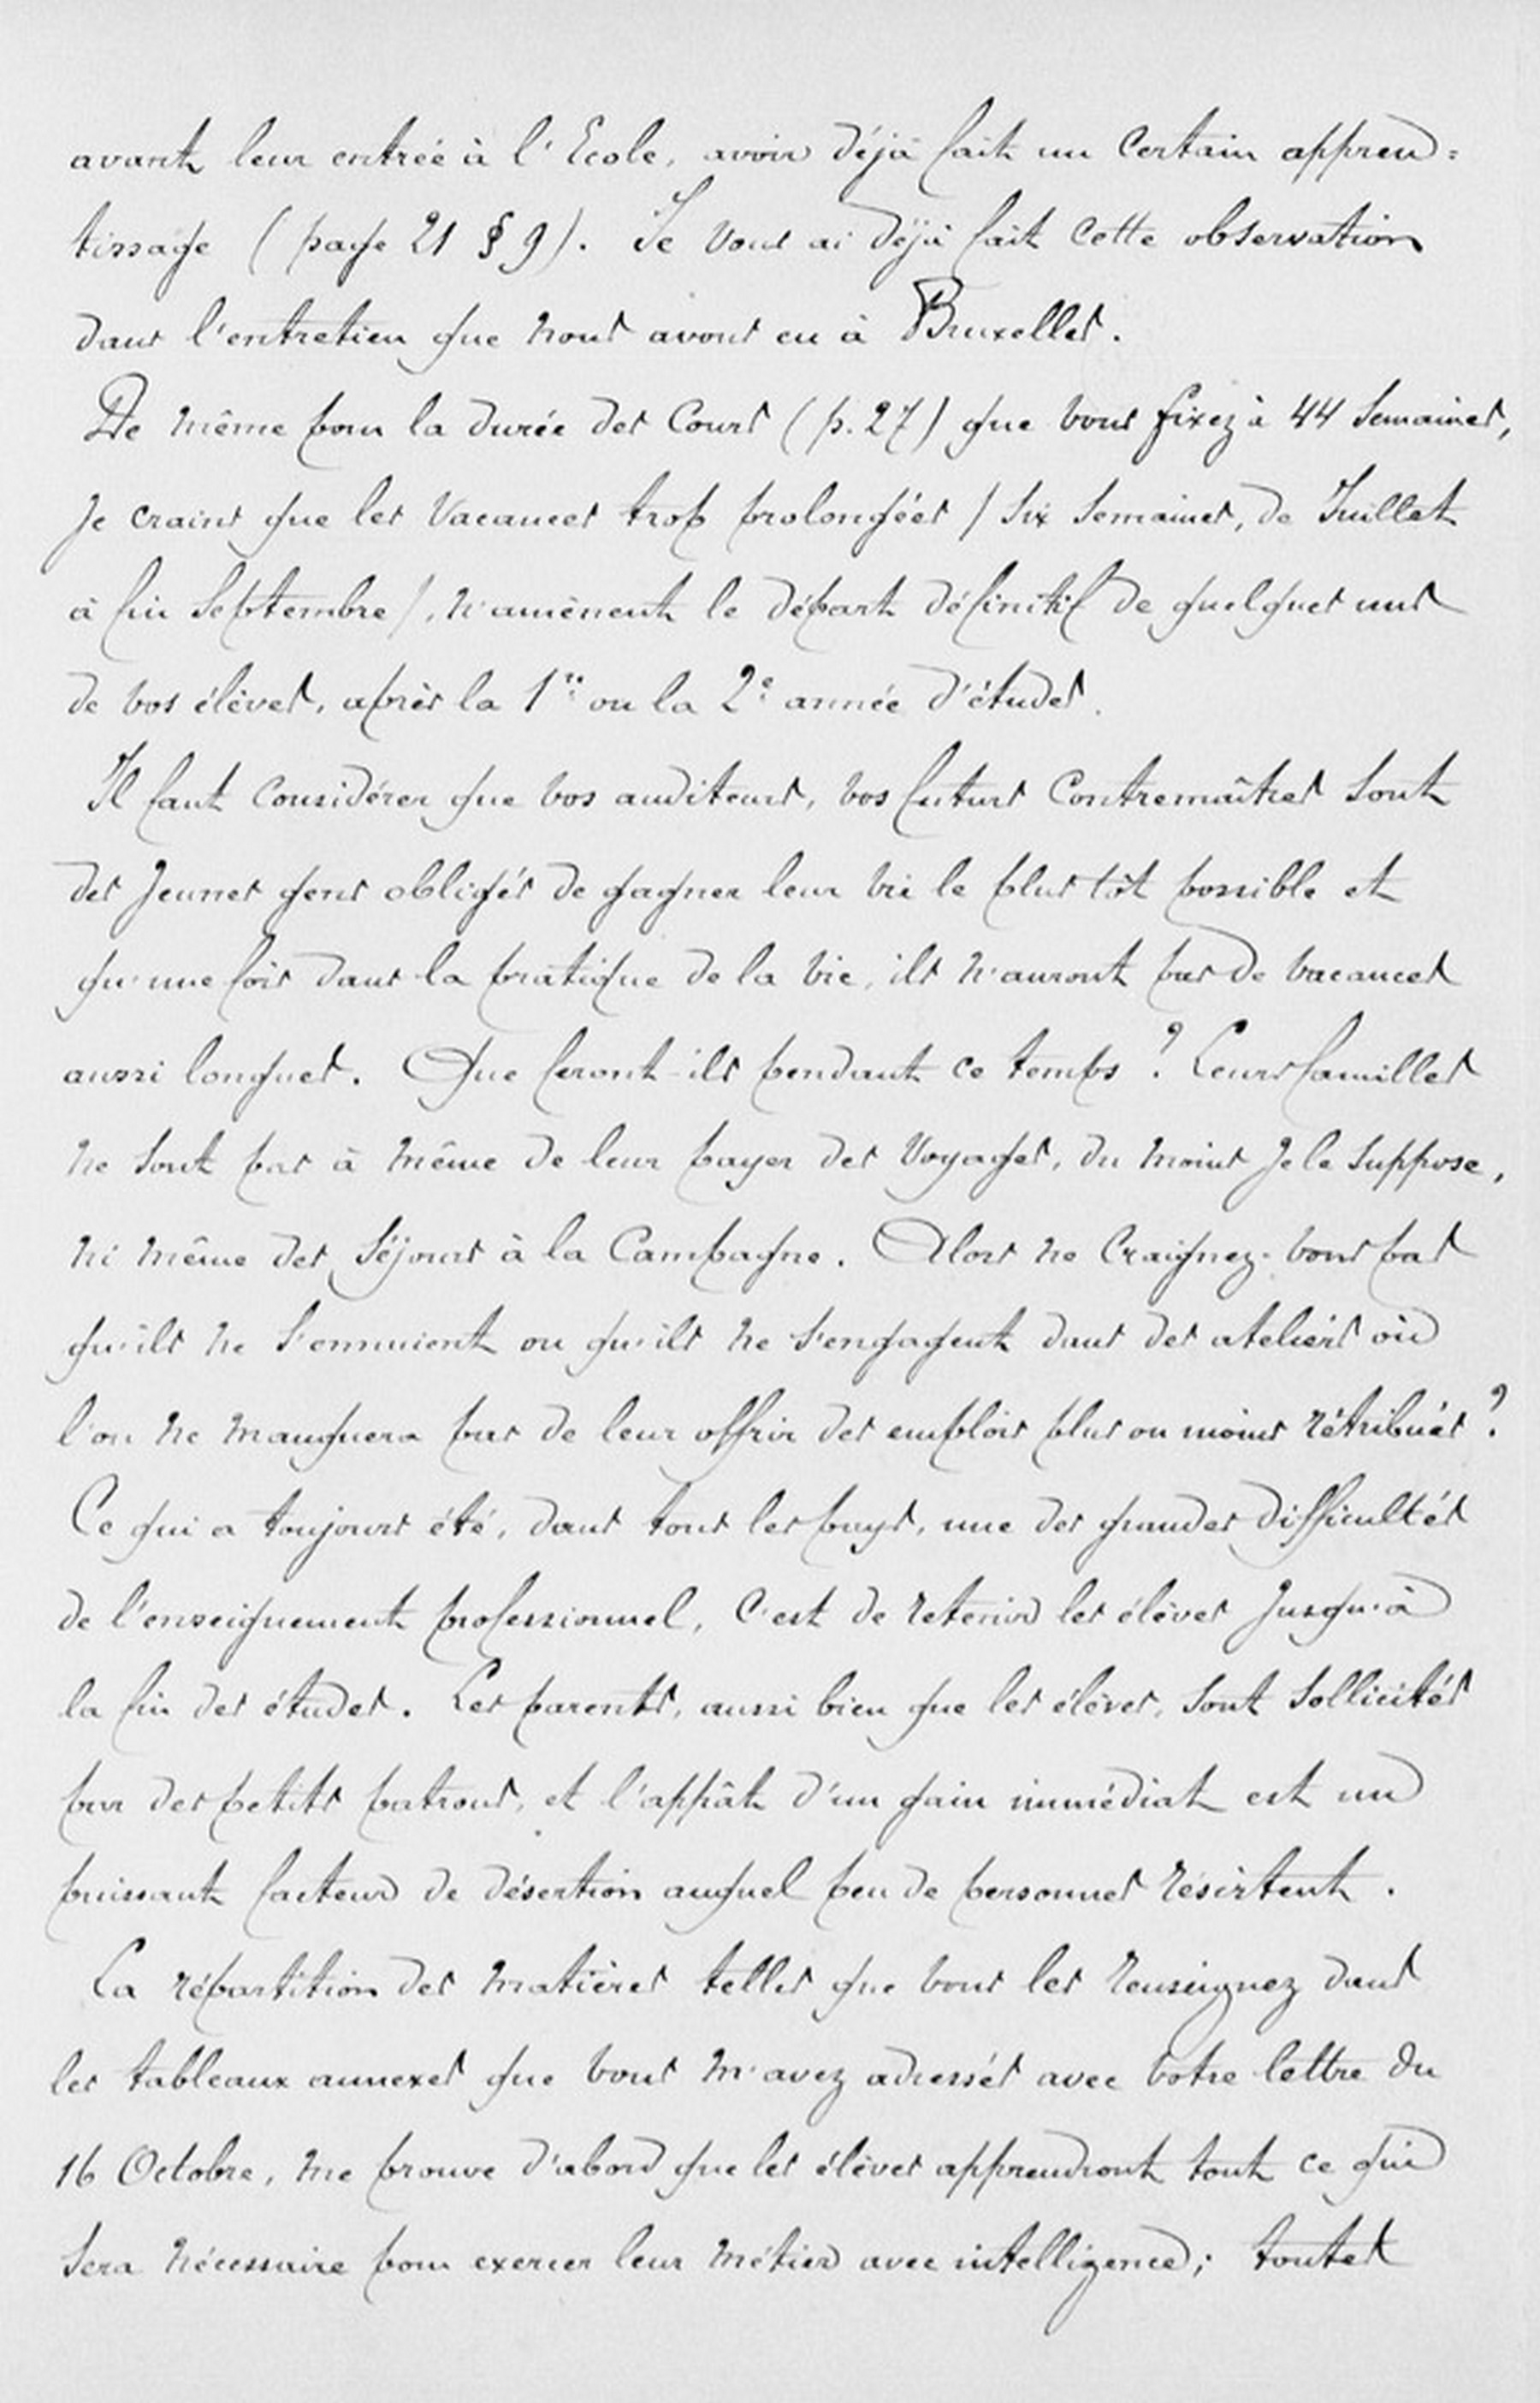 avant leur entrée à l'Ecole, avoir déjà fait un certain appren=
tissage (page 21 § 9). Je vous ai déjà fait cette observation
dans l'entretien que nous avons eu à Bruxelles.
De même pour la durée des Cours (p. 27) que vous fixez à 44 Semaines,
je crains que les Vacances trop prolongées (Six Semaines, de Juillet
à fin Septembre), n'amènent le départ définitif de quelques uns
de vos élèves, après la 1re ou la 2e année d'études.
Il faut considérer que vos auditeurs, vos futurs Contremaîtres sont
des jeunes gens obligés de gagner leur vie le plus tôt possible et
qu'une fois dans la pratique de la vie, ils n'auront pas de vacances
aussi longues. Que feront-ils pendant ce temps ? Leurs familles
ne sont pas à même de leur payer des Voyages, du moins je le suppose,
ni même des Séjours à la Campagne. Alors ne craignez-vous pas
qu'ils ne s'ennuient ou qu'ils ne s'engagent dans des ateliérs où
l'on ne manquera pas de leur offrir des emplois plus ou moins rétribués ?
Ce qui a toujours été, dans tous les pays, une des grandes difficultés
de l'enseignement professionnel, c'est de retenir les élèves jusqu'à
la fin des études. Les parents, aussi bien que les élèves, sont sollicités
par des petits patrons, et l'appât d'un gain immédiat est un
puissant facteur de désertion auquel peu de personnes résistent.
La répartition des matières telles que vous les renseignez dans
les tableaux annexes que vous m'avez adressés avec votre lettre du
16 Octobre, me prouve d'abord que les élèves apprendront tout ce qui
sera nécessaire pour exercer leur métier avec intelligence; toutes